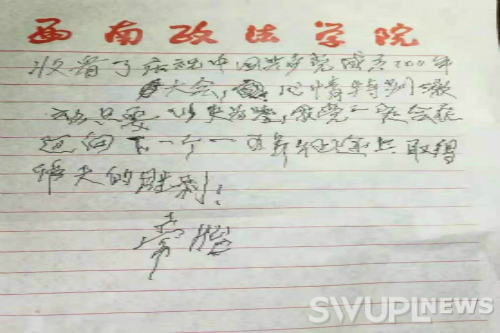 西南政法学院
收看了庆祝中国共产党成立100年
大会，心情特别激
动只要以史为鉴，我党一定会在
迈向下一个一百年征途上取得
伟大的胜利！
常怡
SWUPLNEWS